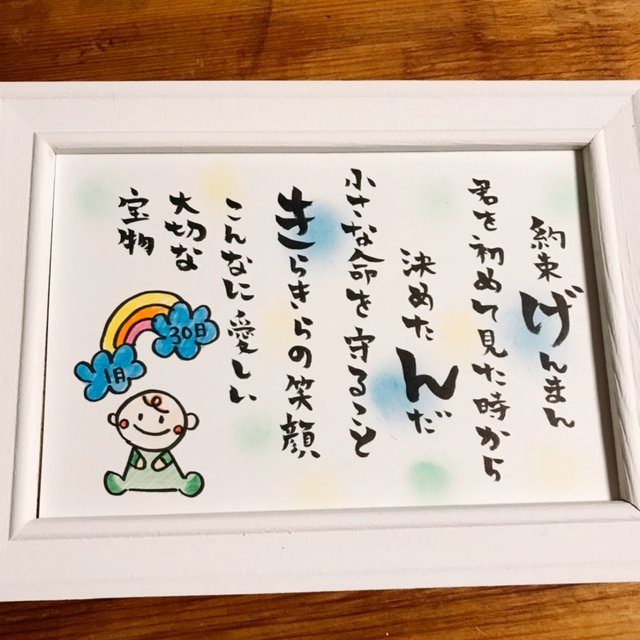 約束げんまん
君を初めて見た時から
決めたんだ
小さな命を守ること
きらきらの笑顔
こんなに愛しい
大切な
宝物
1月
30日